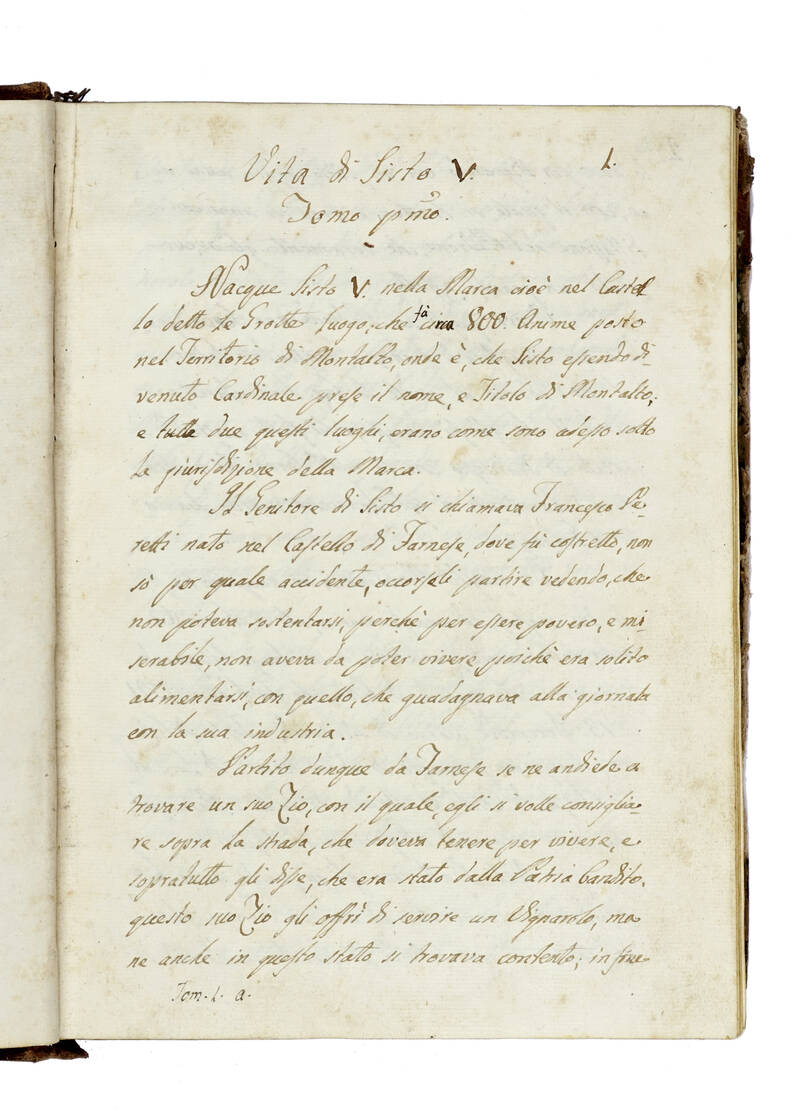 1.
Vita di Sisto V.
Tomo pmo.
Nacque Sisto V. nella Marca cioè nel Castel
lo detto le Grotte luogo, che fà circa 800. Anime posto
nel Territorio di Montalto, onde è, che Sisto essendo di-
venuto Cardinale prese il nome, e Titolo di Montalto;
e tutta due questi luoghi, erano come sono adesso sotto
la giurisdizione della Marca.
Il Genitore di Sisto si chiamava Francesco Pe-
retti nato nel Castello di Farnese, dove fù costretto, non
sò per quale accidente, occorseli partire vedendo, che
non poteva sostentarsi, perchè per essere povero, e mi-
serabile, non aveva da poter vivere poichè era solito
alimentarsi, con quello, che guadagnava alla giornata
con la sua industria.
Partito dunque da Farnese se ne andiede a
trovare un suo Zio, con il quale, egli si volle consiglia-
re sopra la strada, che doveva tenere per vivere, e
sopratutto gli disse, che era stato dalla Patria bandito,
questo suo Zio gli offrì di servire un Vignarolo, ma
ne anche in questo stato si trovava contento; in fine
Tom. 1. a.